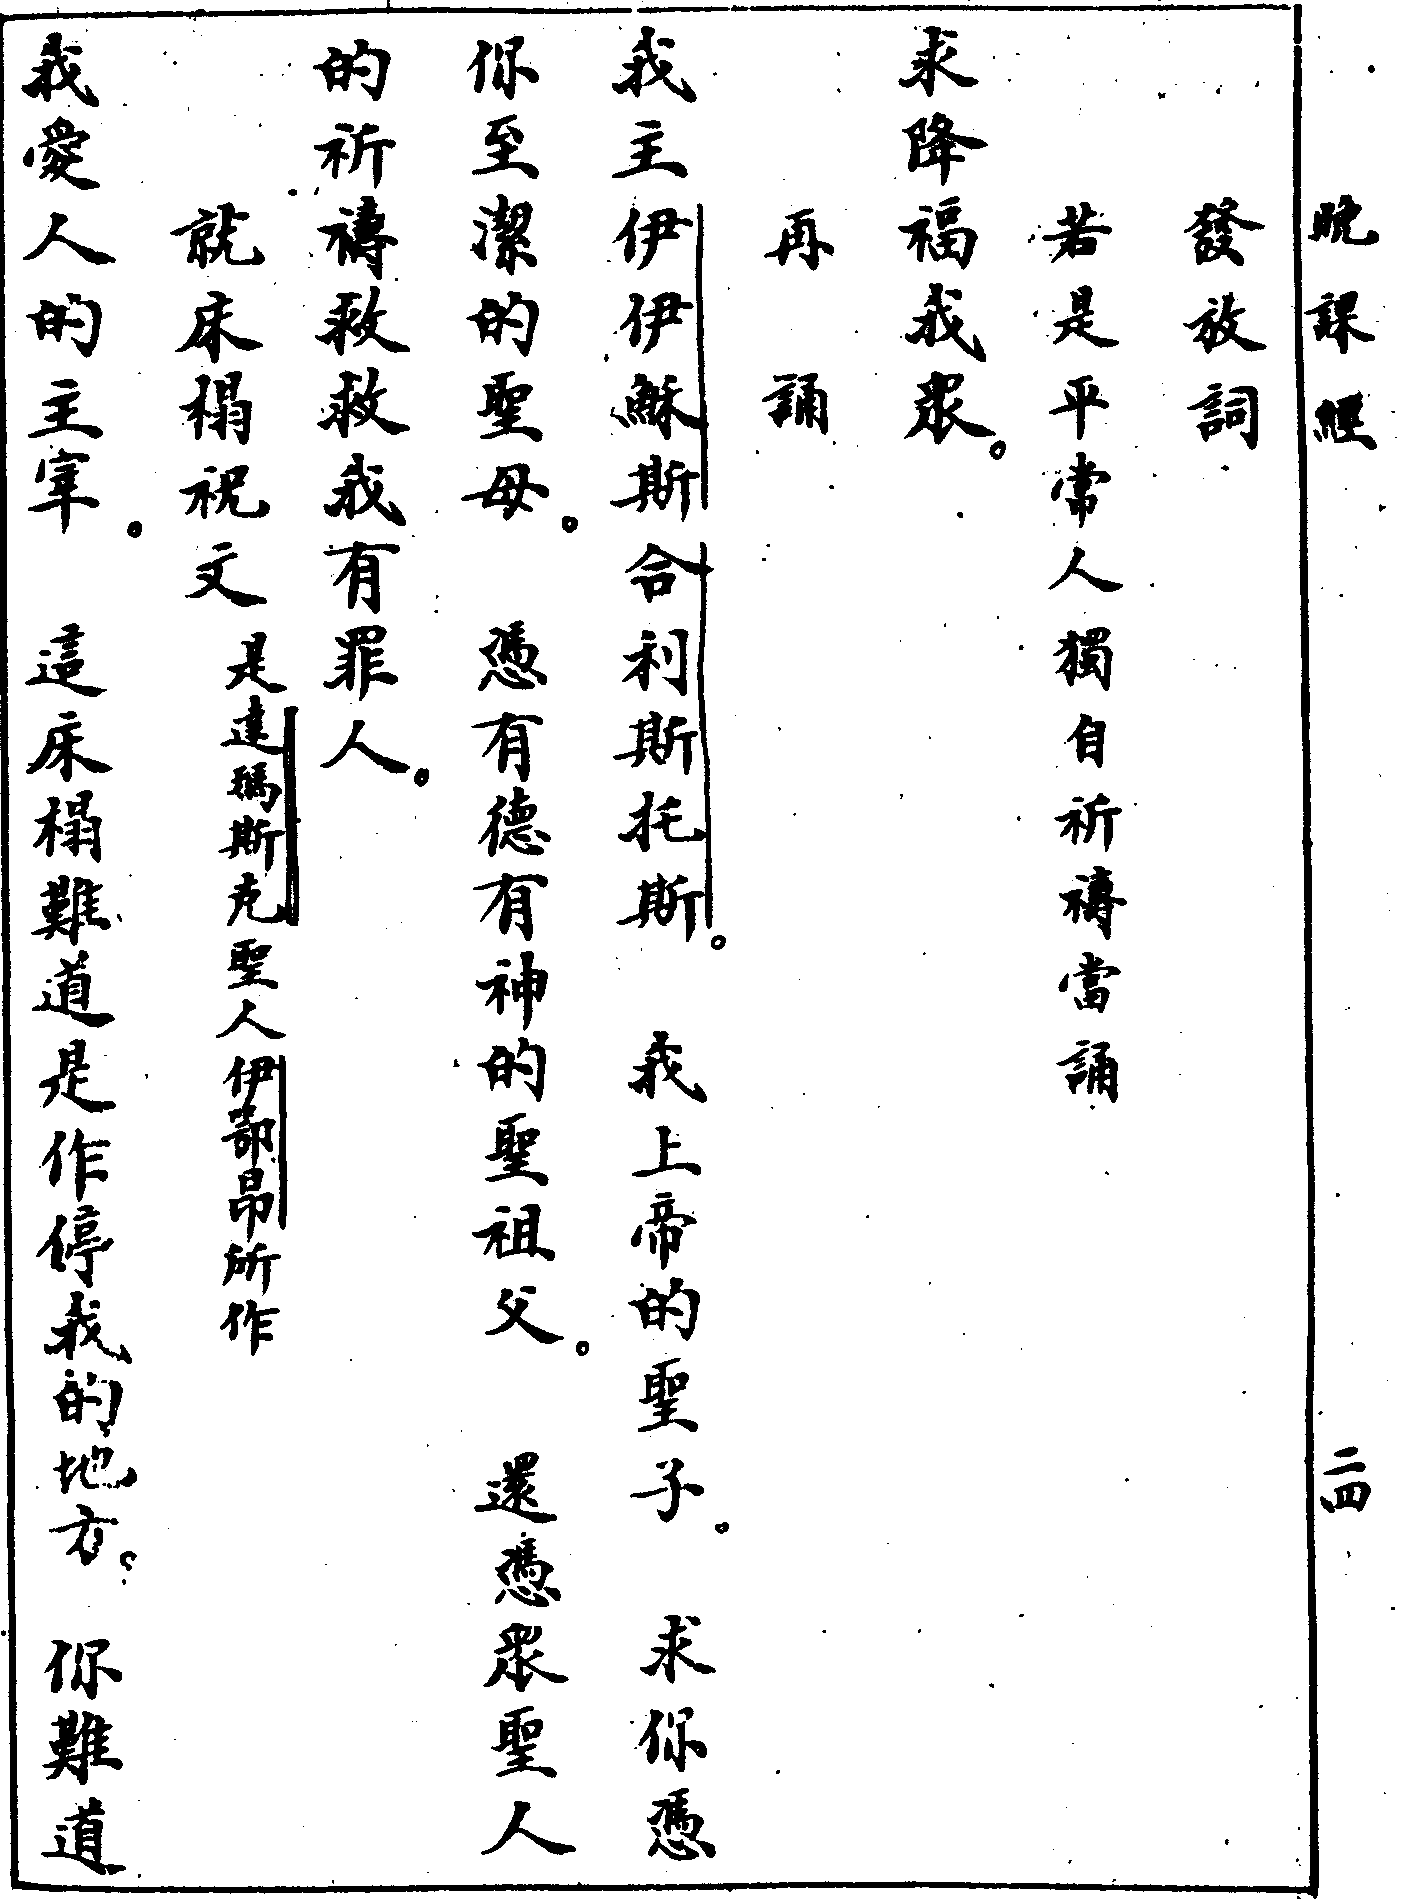 晚課經 二四
發放詞
若是平常人獨自祈禱當誦
求降福我衆。
再誦
我主伊伊穌斯合利斯托斯。 我上帝的聖子。 求你憑
你至潔的聖母。 憑有德有神的聖祖父。 還憑衆聖人
的祈禱救救我有罪人。
就床榻祝文 是達瑪斯克聖人伊鄂昂所作
我愛人的主宰。 這床榻難道是作停我的地方。 你難道